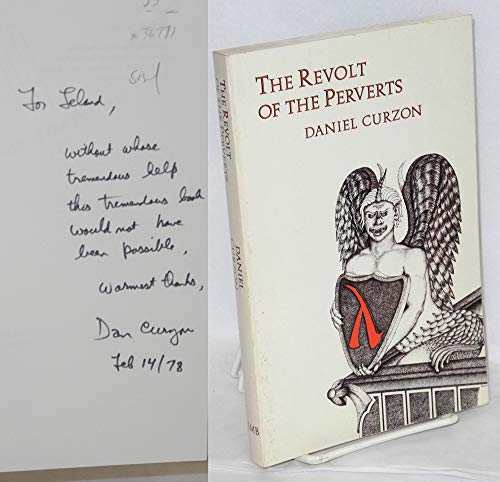 *36771
For Leland,
without whose
tremendous help
this tremendous book
would not have
been possible,
warmest thanks,
Dan Curzon
Feb 14/78
THE REVOLT
OF THE PERVERTS
DANIEL CURZON
λ
THE REVOLT
DANIEL